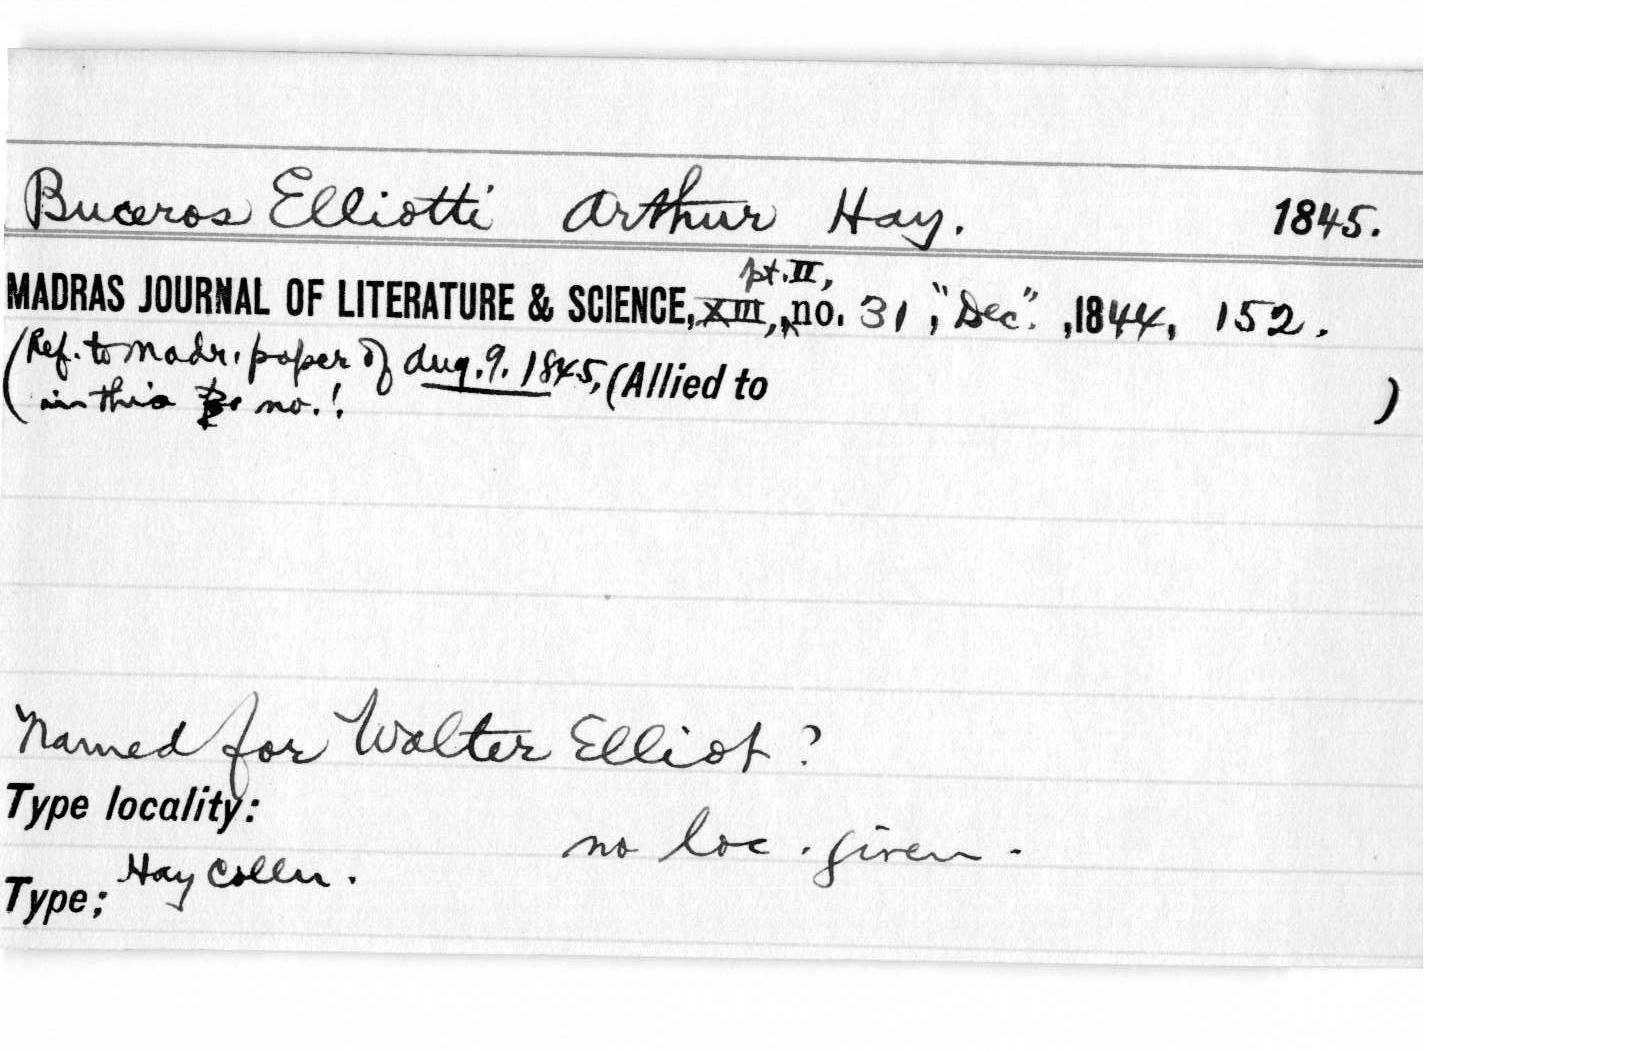 Buceros Elliotti Arthur Hay. 1845.
pt. II,
MADRAS JOURNAL OF LITERATURE & SCIENCE, XIII, no. 31, "Dec"., 1844, 152.
(Ref. to Madr. paper of Aug. 9. 1845, (Allied to )
in this no.!
Named for Walter Elliot?
Type locality:
no loc. given.
Hay Colln.
Type;